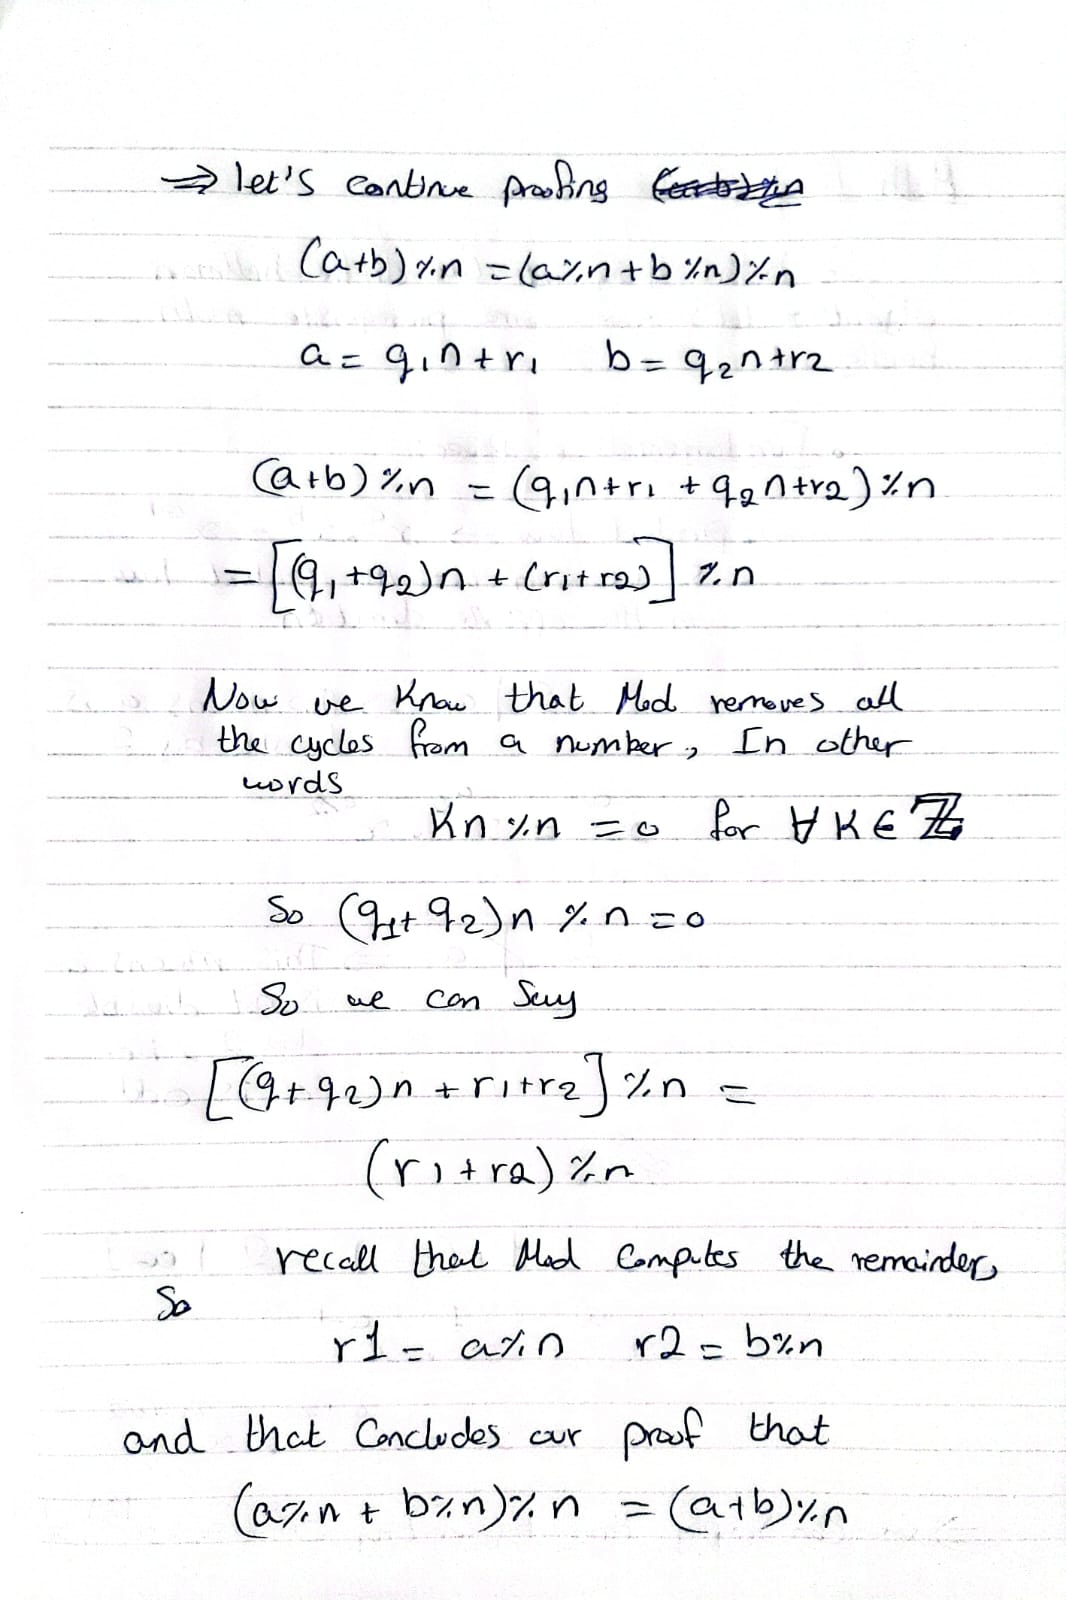 ⇒ let's continue proofing
(a+b)%n = (a%n + b%n)%n
a = q₁n + r₁ b = q₂n + r2
(a+b)%n = (q₁n + r₁ + q₂n + r2)%n
= [(q₁ + q₂)n + (r₁ + r₂)] % n
Now we Know that Mod removes all
the cycles from a number, In other
words
Kn % n = 0 for ∀ K ∈ ℤ
So (q₁ + q₂)n % n = 0
So we can Say
[(q + q₂)n + r₁ + r₂] % n =
(r₁ + r₂) % n
recall that Mod Computes the remainder,
So
r1 = a%n r2 = b%n
and that Concludes our proof that
(a%n + b%n)%n = (a+b)%n